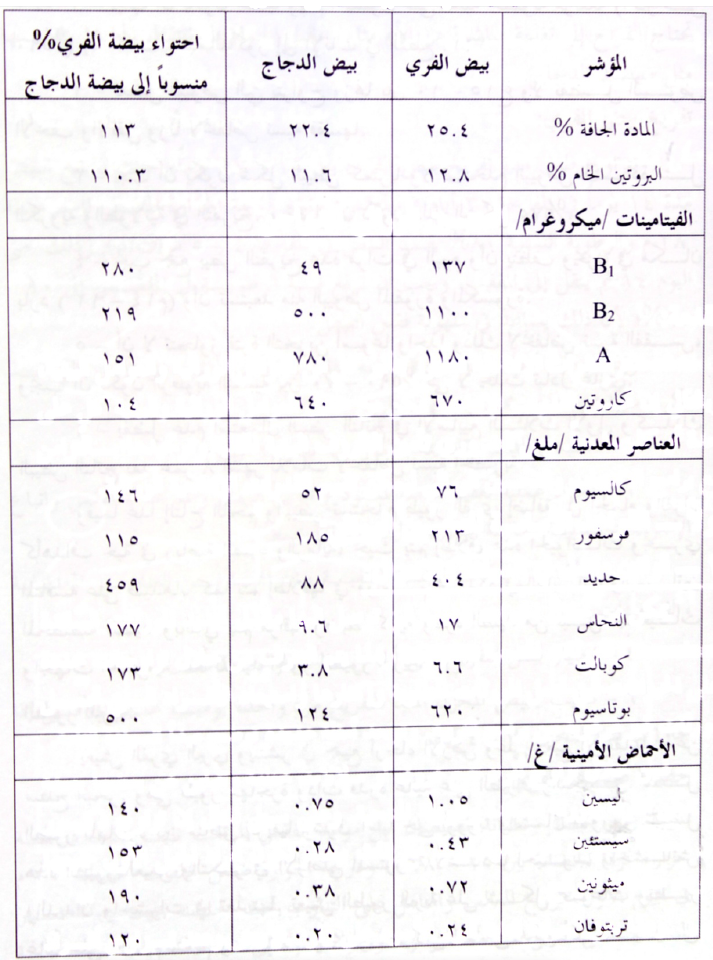 المؤشر بيض الفري بيض الدجاج احتواء بيضة الفري% منسوباً إلى بيضة الدجاج
المادة الجافة % ٢٥.٤ ٢٢.٤ ١١٣
البروتين الخام % ١٢.٨ ١١.٦ ١١٠.٣
الفيتامينات /ميكروغرام/
B₁ ١٣٧ ٤٩ ٢٨٠
B₂ ١١٠٠ ٥٠٠ ٢١٩
A ١١٨٠ ٧٨٠ ١٥١
كاروتين ٦٧٠ ٦٤٠ ١٠٤
العناصر المعدنية /ملغ/
كالسيوم ٧٦ ٥٢ ١٤٦
فوسفور ٢١٣ ١٨٥ ١١٥
حديد ٤٠٤ ٨٨ ٤٥٩
النحاس ١٧ ٩.٦ ١٧٧
كوبالت ٦.٦ ٣.٨ ١٧٣
بوتاسيوم ٦٢٠ ١٢٤ ٥٠٠
الأحماض الأمينية /غ/
ليسين ١.٠٥ ٠.٧٥ ١٤٠
سيستئين ٠.٤٣ ٠.٢٨ ١٥٣
ميثونين ٠.٧٢ ٠.٣٨ ١٩٠
تربتوفان ٠.٢٤ ٠.٢٠ ١٢٠